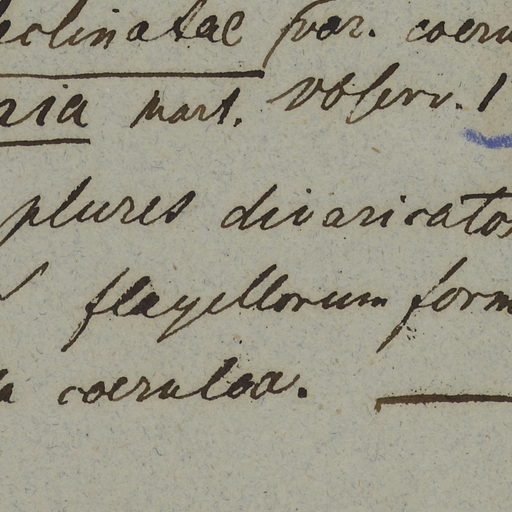 eclinatae (var. coeru
nia Mart. observ. 1
plures divaricatos
flagellorum form
a coerulea.